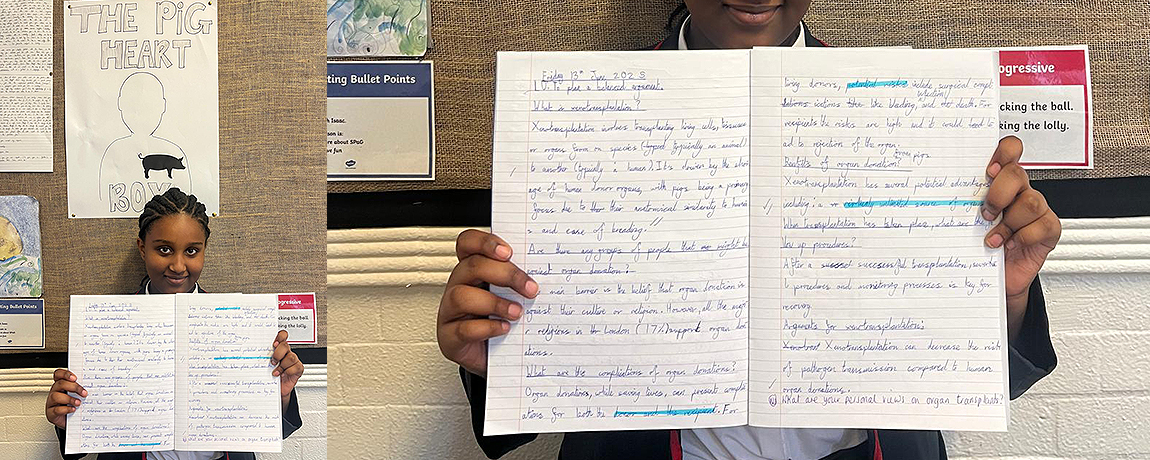 THE PIG
HEART
BOY
ting Bullet Points
h Isaac.
son is:
re about SPaG
ve fun
ogressive
cking the ball.
king the lolly.
Friday 13th June 2025
LO: To plan a balanced argument.
What is xenotransplantation?
Xenotransplantation involves transplanting living cells, tissues
or organs from on species (typically an animal)
to another (typically a human). It's driven by the short
age of human donor organs, with pigs being a primary
focus due to their anatomical similarity to human
s and ease of breeding.
Are there any groups of people that might be
against organ donation?
a main barrier is the belief that organ donation is
against their culture or religion. However, all the major
religions in the London (17%) support organ don
ations.
What are the complications of organ donations?
Organ donations, while saving lives, can present compli
ations for both the donor and the recipient. For
living donors, potential risks include surgical compl
ications like bleeding, infection, and death. For
recipients the risks are high and it could lead to
rejection of the organ.
Benefits of organ donation? from pigs
Xenotransplantation has several potential advantages
including: a virtually unlimited source of organs
When transplantation has taken place, what are the fol
low up procedures?
After a successful transplantation, several
procedures and monitoring processes is key for
recovery
Arguments for xenotransplantation:
Xenotransplantation can decrease the risk
of pathogen transmission compared to human
organ donations.
What are your personal views on organ transplants?
ogressive
cking the ball.
king the lolly.
ting Bullet Points